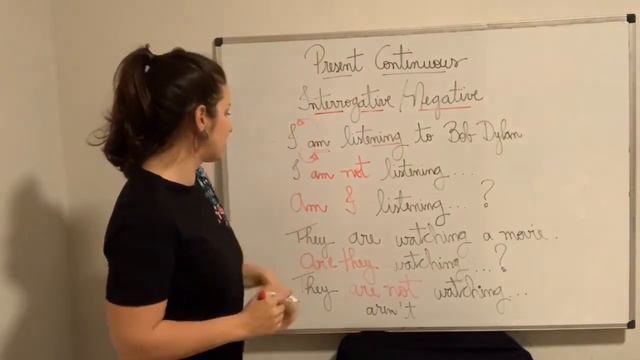 Present Continuous
Interrogative/Negative
I am listening to Bob Dylan
I am not listening....
Am I listening...?
They are watching a movie.
Are they watching...?
They are not watching...
aren't